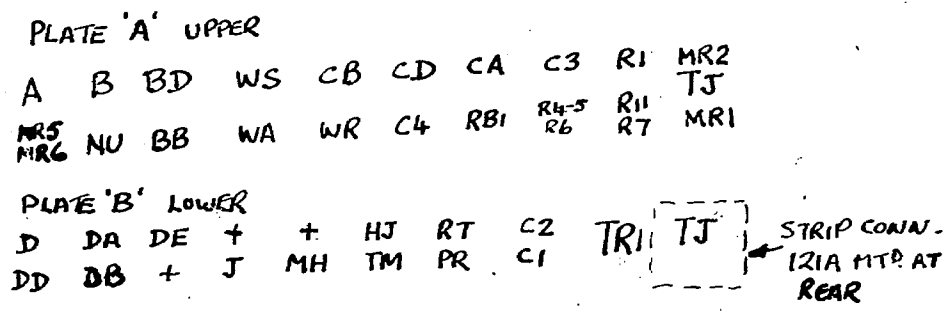 PLATE 'A' UPPER
A B BD WS CB CD CA C3 R1 MR2
TJ
MR5 NU BB WA WR C4 RB1 R4-5 R11 MR1
MR6 R6 R7
PLATE 'B' LOWER
D DA DE + + HJ RT C2 TR1 TJ
DD DB + J MH TM PR C1
STRIP CONN.
121A MTD. AT
REAR